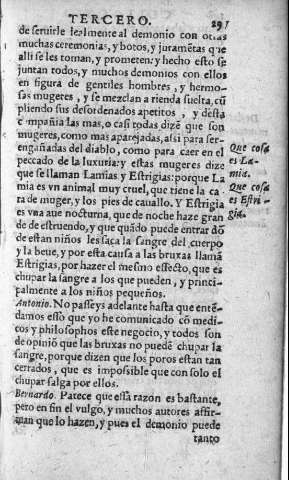 TERCERO. 291
de seruirle lealmente al demonio con otras
muchas ceremonias, y botos, y juramētas que
alli se les toman, y prometen: y hecho esto se
juntan todos, y muchos demonios con ellos
en figura de gentiles hombres, y hermo-
sas mugeres, y se mezclan a rienda suelta, cū
pliendo sus desordenados apetitos, y desta
cōmpañia las mas, o casi todas dizē que son
mugeres, como mas aparejadas, assi para ser
engañadas del diablo, como para caer en el
peccado de la luxuria: y estas mugeres dize
que se llaman Lamias, y Estrigias: porque La
mia es vn animal muy cruel, que tiene la ca
ra de muger, y los pies de cauallo. Y Estrigia
es vna aue nocturna, que de noche haze gran
de de estruendo, y que quādo puede entrar dō
de estan niños les saca la sangre del cuerpo
y la beue, y por esta causa a las bruxas llamā
Estrigias, por hazer el mesmo effecto, que es
chupar la sangre a los que pueden, y princi-
palmente a los niños pequeños.
Que cosa
es La-
mia.
Que cosa
es Estri-
gia.
Antonio. No passeys adelante hasta que entē-
damos esso que yo he comunicado cō medi-
cos y philosophos este negocio, y todos son
de opinió que las bruxas no puedē chupar la
sangre, porque dizen que los poros estan tan
cerrados, que es impossible que con solo el
chupar salga por ellos.
Bernardo. Parece que essa razón es bastante,
pero en fin el vulgo, y muchos autores affir-
man que lo hazen, y pues el demonio puede
tanto